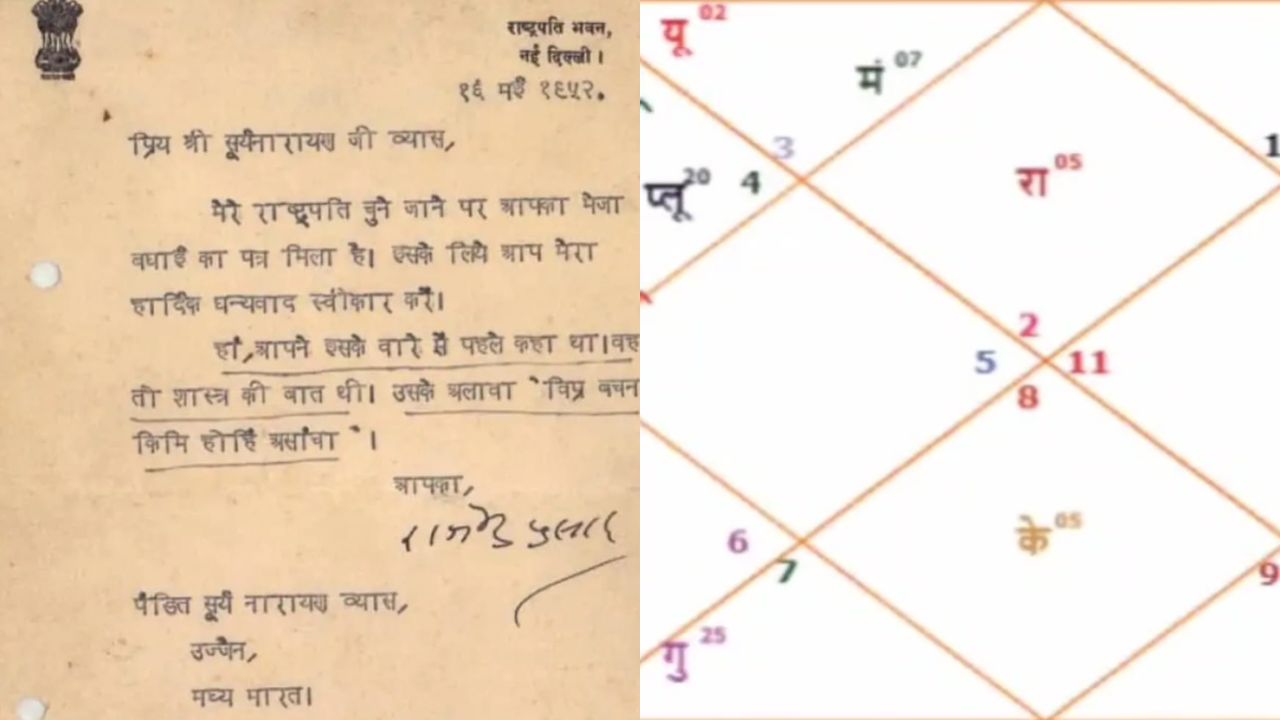 राष्ट्रपति भवन,
नई दिल्ली।
१६ मई १९५२.
प्रिय श्री सूर्यनारायण जी व्यास,
मेरे राष्ट्रपति चुने जाने पर आपका भेजा
बधाई का पत्र मिला है। इसके लिये आप मेरा
हार्दिक धन्यवाद स्वीकार करें।
हां, आपने इसके बारे में पहले कहा था। वह
तो शास्त्र की बात थी। उसके अलावा "विप्र बचन
किमि होहिं असांचा"।
आपका,
राजेन्द्र प्रसाद
पंडित सूर्य नारायण व्यास,
उज्जैन,
मध्य भारत।
यू 02
मं 07
3
प्लू 20 4
रा 05
1
2
5 11
8
6
7
के 05
9
गु 25